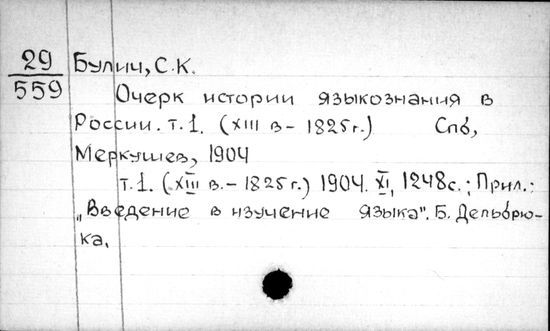 29
559
Булич, С.К.
Очерк истории языкознания в
России. т.1. (XIII в - 1825 г.) Спб,
Меркушев, 1904
т.1. (XIII в. - 1825 г.) 1904. XI, 1248с.; Прил.:
„Введение в изучение языка". Б. Дельбрю-
ка.